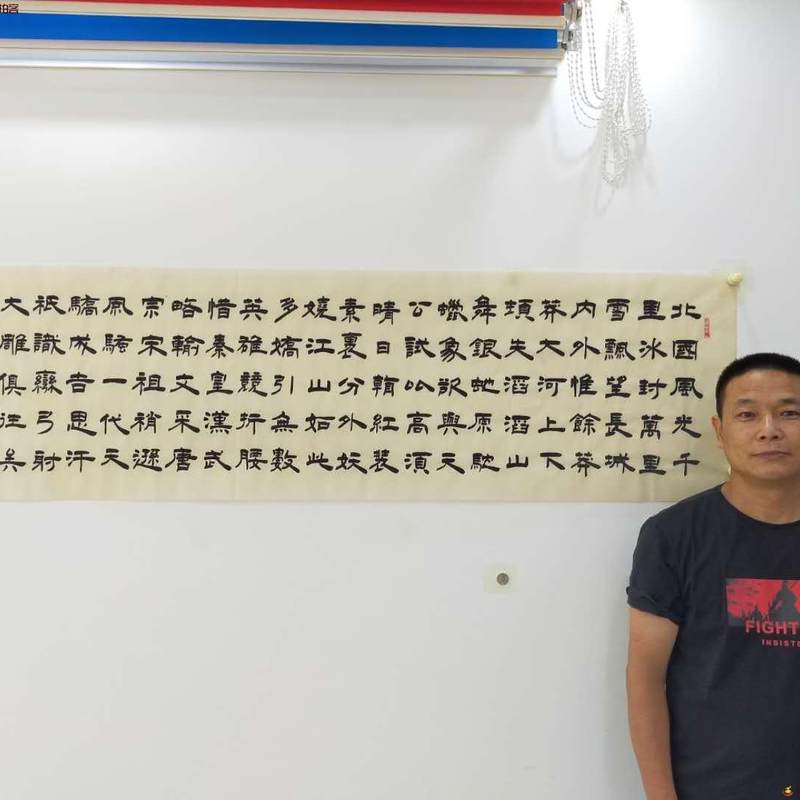 北國風光千
里冰封萬里
雪飄望長城
內外惟餘莽
莽大河上下
頓失滔滔山
舞銀虵原馳
蠟象欲與天
公試比高須
晴日看紅裝
素裏分外妖
嬈江山如此
多嬌引無數
英雄競折腰
惜秦皇漢武
略輸文采唐
宗宋祖稍遜
風騷一代天
驕成吉思汗
祇識彎弓射
大雕俱往矣
FIGHT
INSISTE